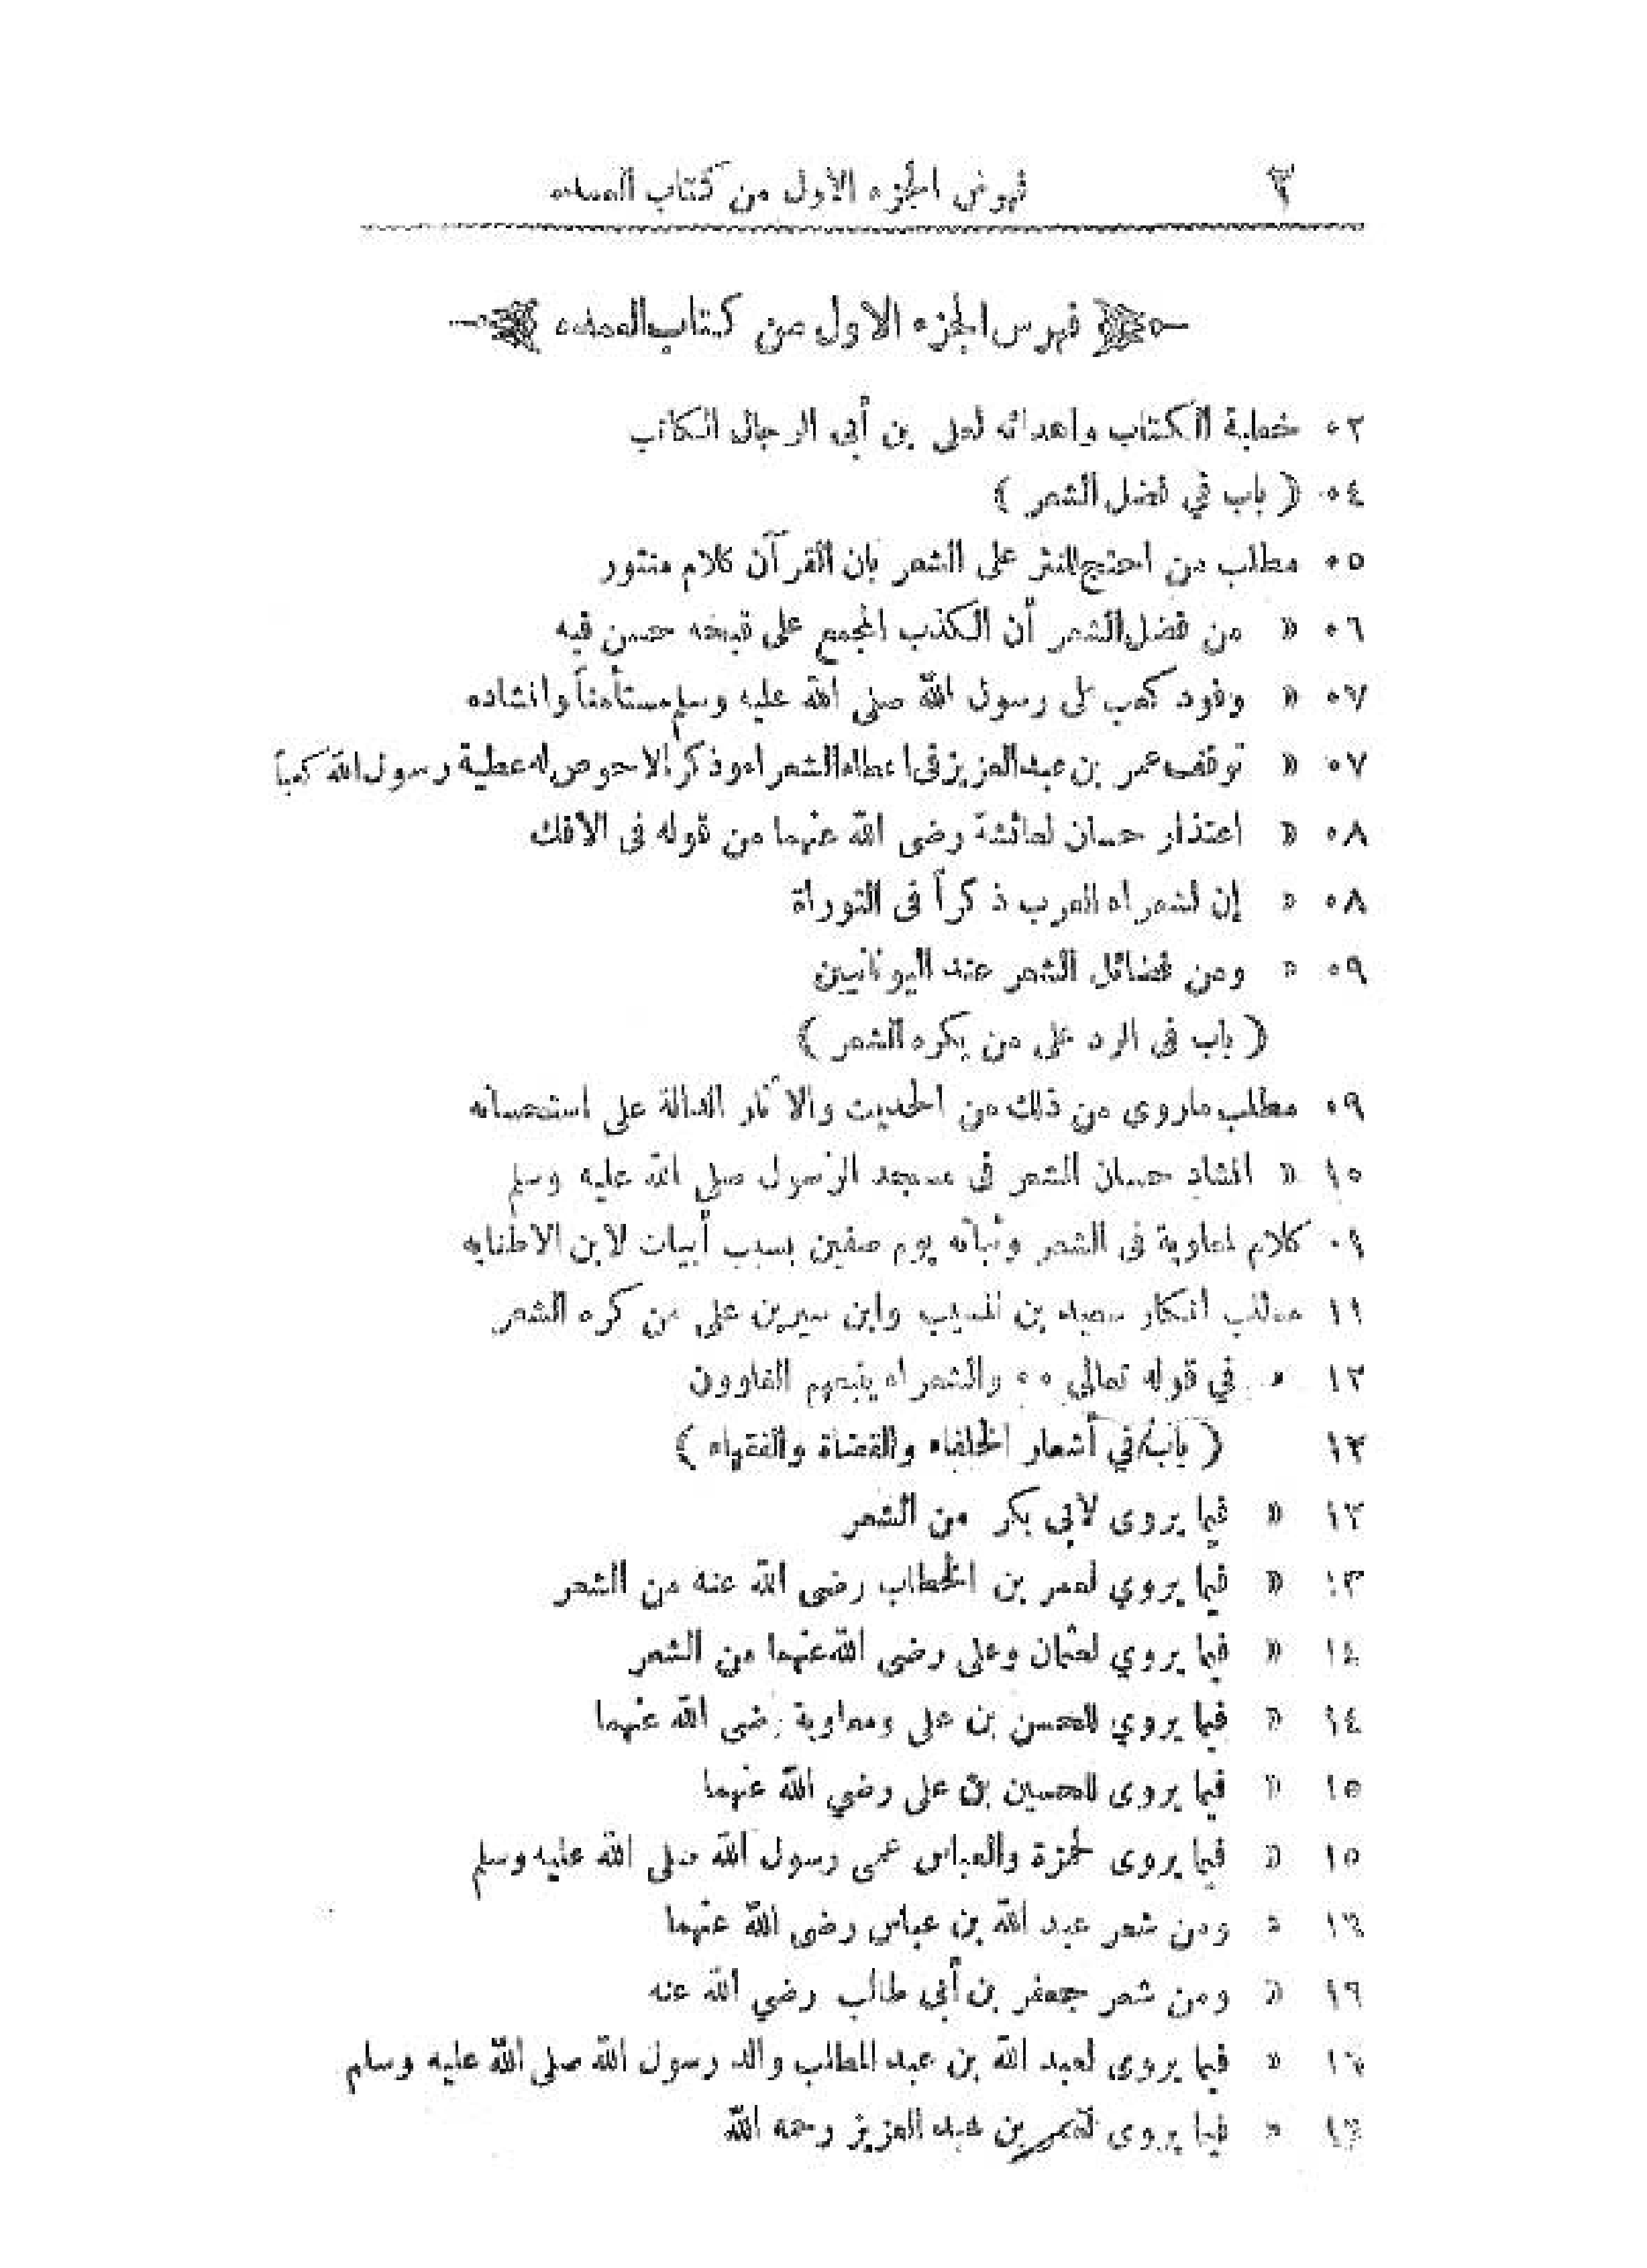 فهرس الجزء الاول من كتاب العمده ٢
فهرس الجزء الاول من كتاب العمده
٠٢ خطبة الكتاب واهدائه لعلى بن أبى الرجال الكاتب
٠٤ ( باب في فضل الشعر )
٠٥ مطلب من احتج للنثر على الشعر بان القرآن كلام منثور
٠٦ » من فضل الشعر أن الكذب المجمع على قبحه حسن فيه
٠٧ » وفود كعب على رسول الله صلى الله عليه وسلم مستأمناً وانشاده
٠٧ » توقف عمر بن عبد العزيز فى اعطاء الشعراء وذكر الاحوص له عطية رسول الله كعباً
٠٨ » اعتذار حسان لعائشة رضى الله عنهما من قوله فى الافك
٠٨ » إن لشعراء العرب ذكراً فى التوراة
٠٩ » ومن فضائل الشعر عند اليونانيين
( باب فى الرد على من يكره الشعر )
٠٩ مطلب ماروى من ذلك من الحديث والآثار الدالة على استحسانه
١٠ » انشاد حسان الشعر فى مسجد الرسول صلي الله عليه وسلم
كلام لمعاوية فى الشعر وثباته يوم صفين بسبب أبيات لابن الاطنابه
١١ مطلب انكار سعيد بن المسيب وابن سيرين على من كره الشعر
١٢ » في قوله تعالي ٠٠ والشعراء يتبعهم الغاوون
١٣ ( باب في أشعار الخلفاء والقضاة والفقهاء )
١٣ » فيما يروى لابى بكر من الشعر
١٣ » فيما يروي لعمر بن الخطاب رضى الله عنه من الشعر
١٤ » فيما يروي لعثمان وعلى رضى الله عنهما من الشعر
١٤ » فيما يروي للحسن بن على ومعاوية رضى الله عنهما
١٥ » فيما يروى للحسين بن على رضي الله عنهما
١٥ » فيما يروى لحمزة والعباس عمى رسول الله صلى الله عليه وسلم
١٦ » ومن شعر عبد الله بن عباس رضى الله عنهما
١٦ » ومن شعر جعفر بن أبى طالب رضي الله عنه
١٦ » فيما يروى لعبد الله بن عبد المطلب والد رسول الله صلى الله عليه وسلم
١٦ » فيما يروى لعمر بن عبد العزيز رحمه الله